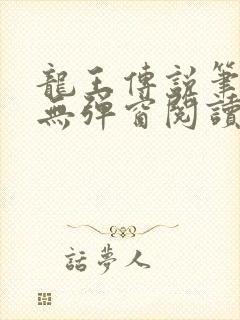 龍王傳說筆
無彈窗閱讀
話夢人